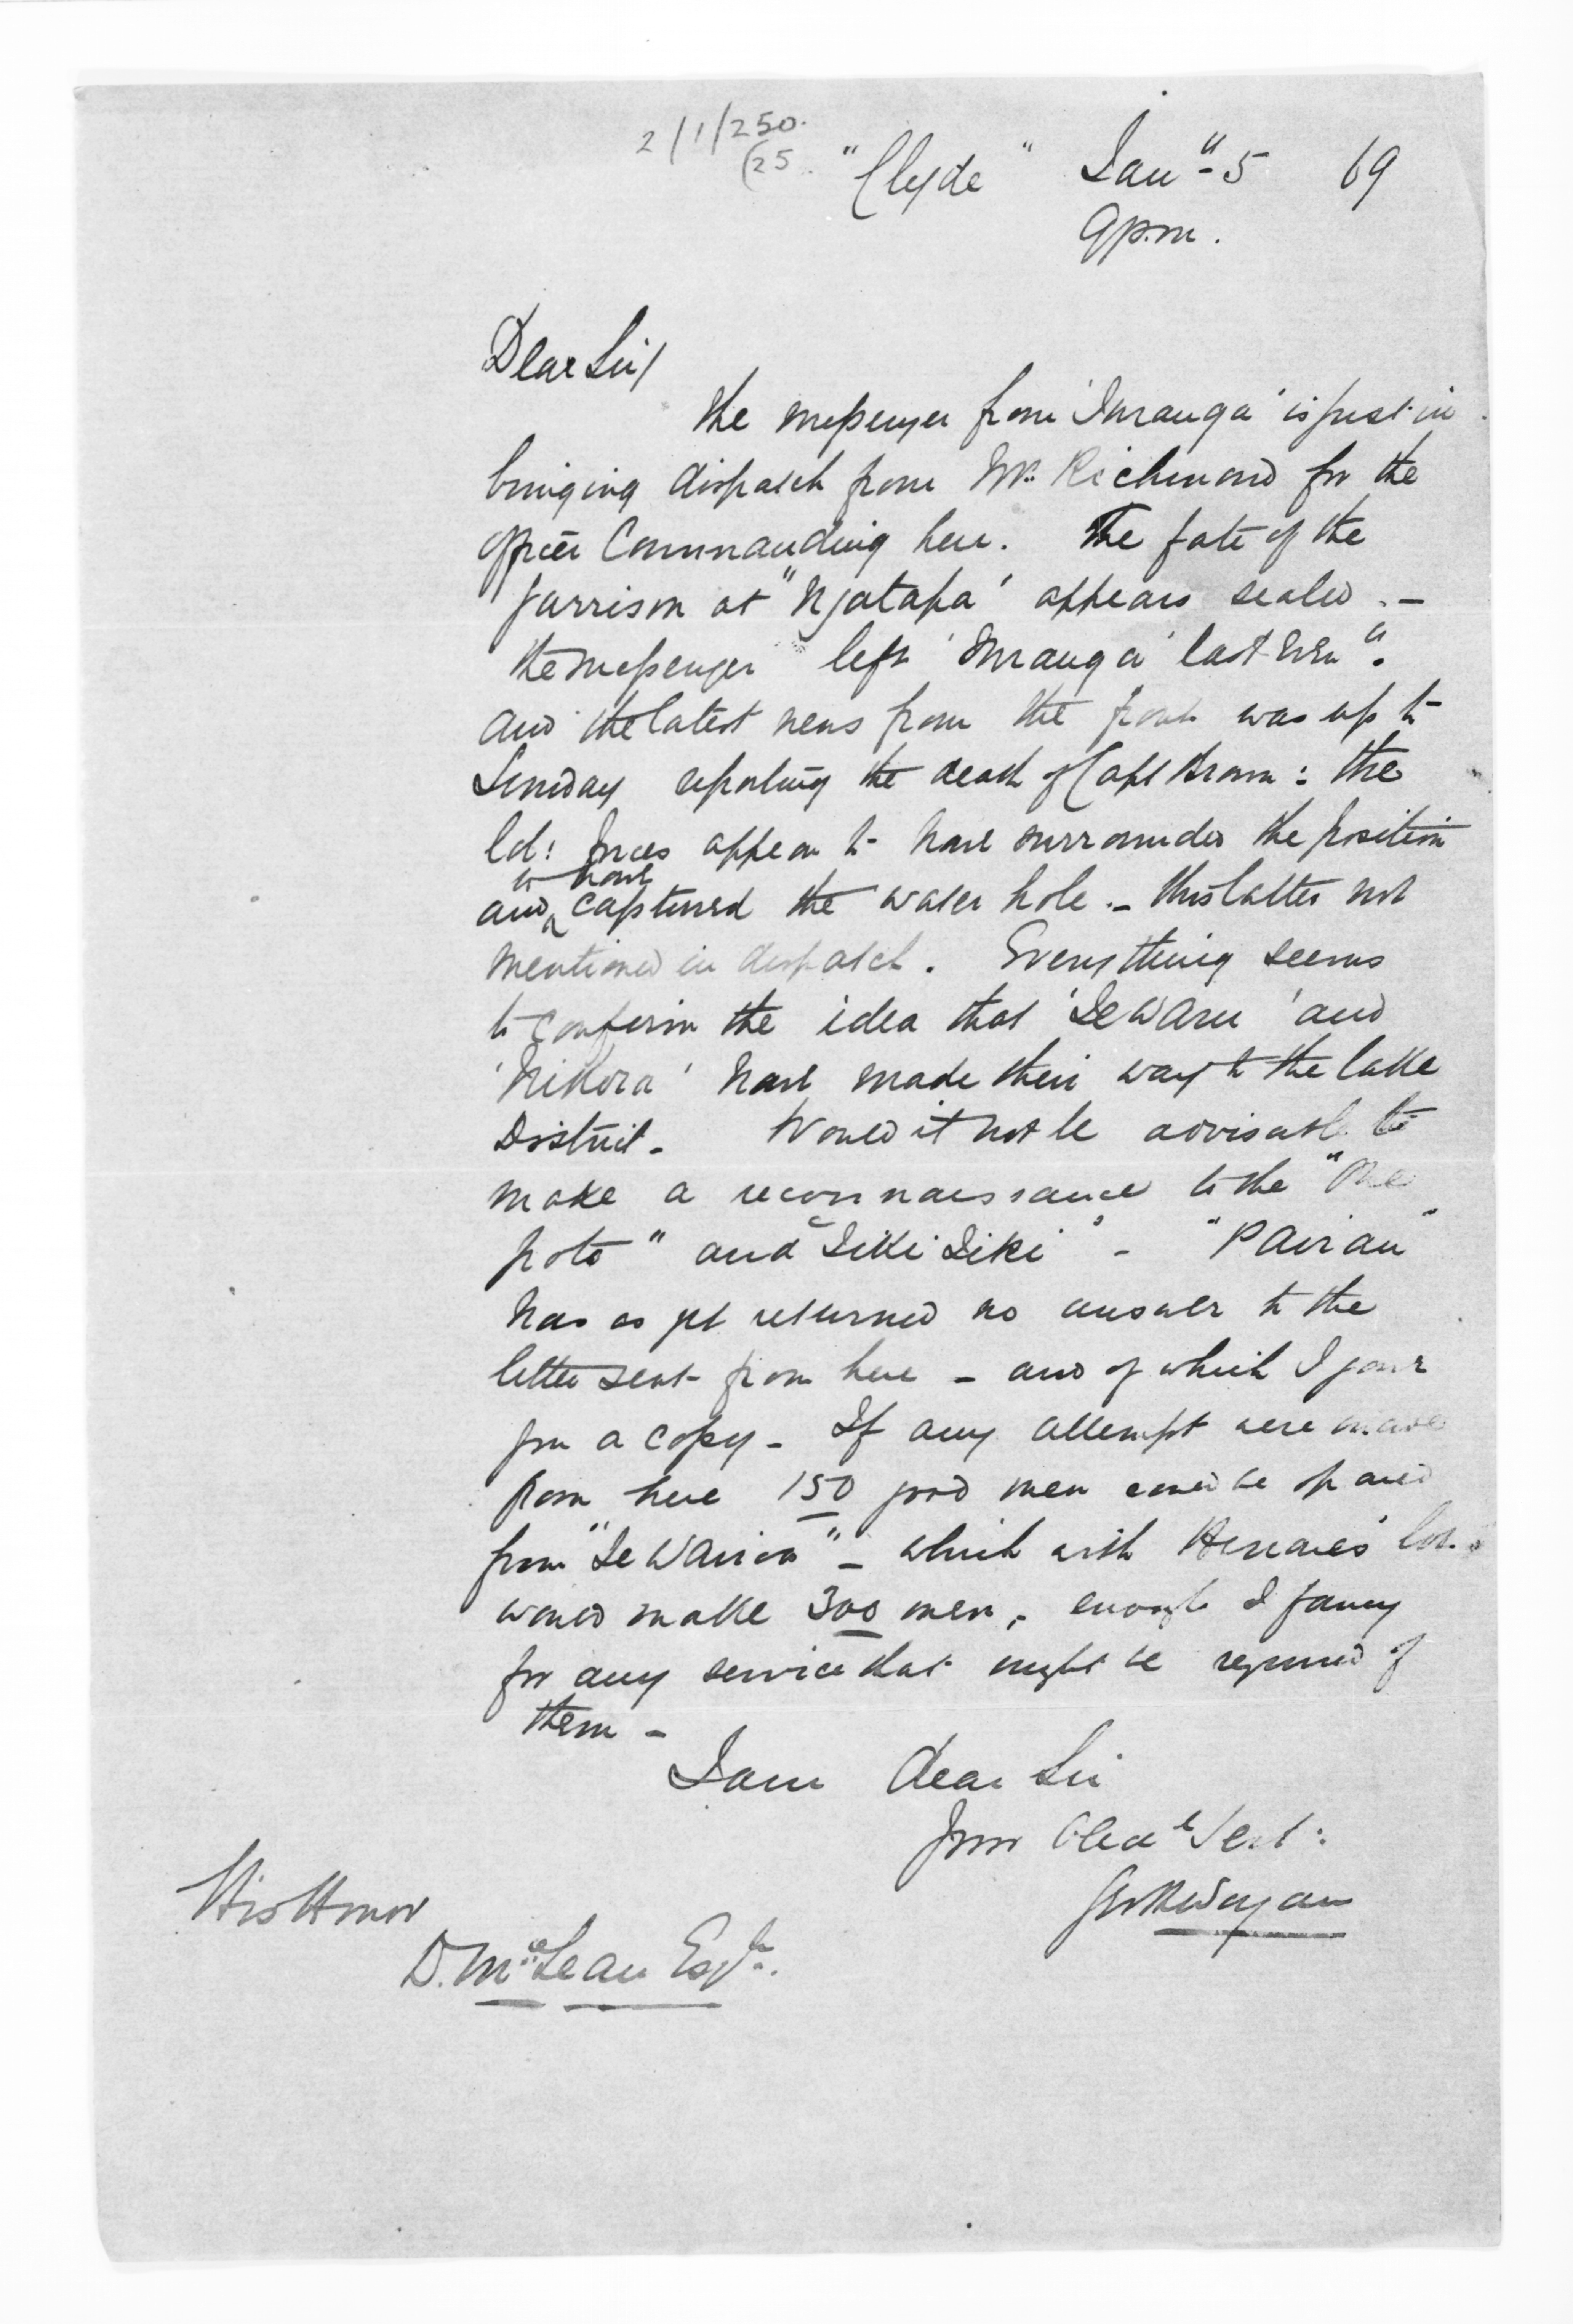 2/1/250.
(25
"Clyde" Jany 5 69
9 p.m.
Dear Sir/
The messenger from 'Turanga' is just in
bringing dispatch from Mr. Richmond for the
officer Commanding here. The fate of the
garrison at "Ngatapa' appears sealed. —
the messenger left 'Turanga' last Even
and the latest news from the front was up to
Sunday reporting the death of Capt Brown: the
Col: forces appear to have surrounded the position
and to have captured the water hole. — this latter not
mentioned in dispatch. Everything seems
to confirm the idea that 'Te Waru' and
'Nikora' have made their way to the lake
District — Would it not be advisable to
make a reconnaissance to the "One
poto" and "Tiki Tiki" — "Pairau"
has as yet returned no answer to the
letter sent from here — and of which I gave
you a copy — If any attempt were made
from here 150 good men could be spared
from "Te Wairoa" — which with Henare's
would make 300 men, enough I fancy
for any service that might be required of
them —
I am dear Sir
Your Obedt Servt:
His Honor
D. McLean Esqr.